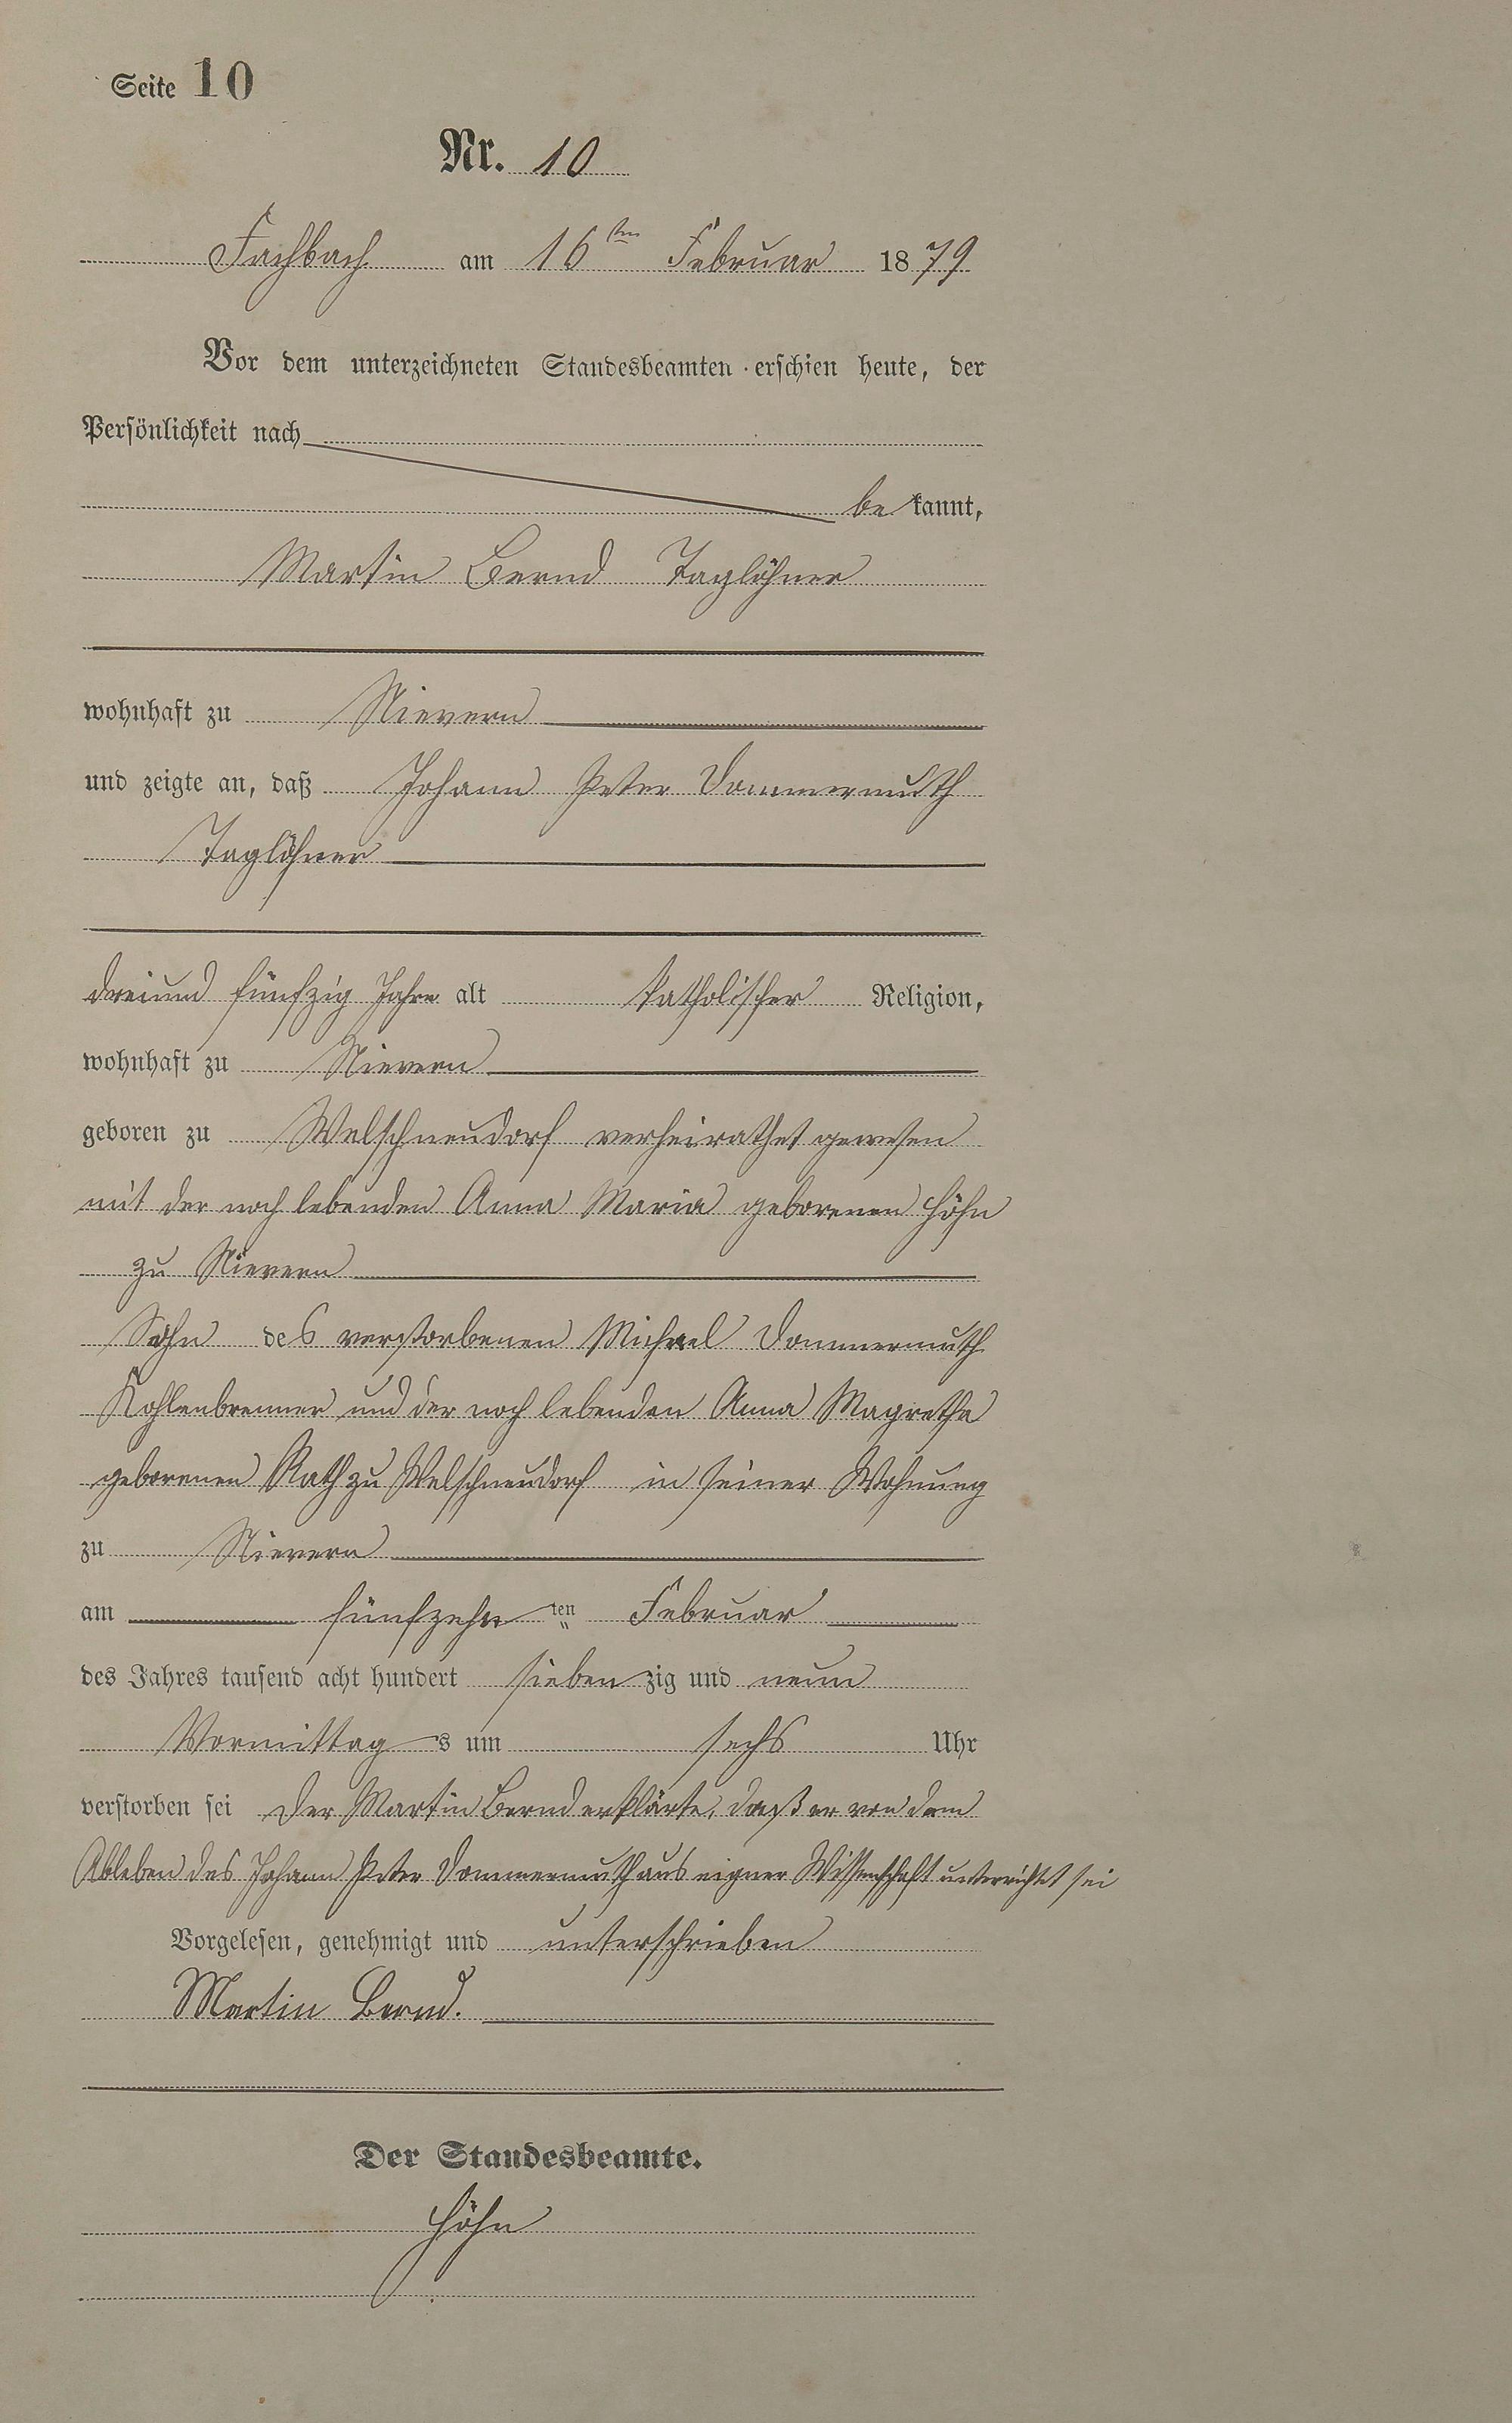 Seite 10
Nr. 10
Fachbach am 16ten Februar 1879
Vor dem unterzeichneten Standesbeamten erschien heute, der
Persönlichkeit nach
bekannt,
Martin Bernd Taglöhner
wohnhaft zu Nievern
und zeigte an, daß Johann Peter Dommermuth
Taglöhner
dreiund fünfzig Jahre alt katholischer Religion,
wohnhaft zu Nievern
geboren zu Welschneudorf verheirathet gewesen
mit der noch lebenden Anna Maria geborenen Höhn
zu Nievern
Sohn des verstorbenen Michael Dommermuth
Kohlenbrenner und der noch lebenden Anna Magretha
geborenen Rath zu Welschneudorf in seiner Wohnung
zu Nievern
am fünfzehnten Februar
des Jahres tausend acht hundert siebenzig und neun
Vormittags um sechs Uhr
verstorben sei Der Martin Bernd erklärte, daß er von dem
Ableben des Johann Peter Dommermuth aus eigner Wissenschaft unterrichtet sei
Vorgelesen, genehmigt und unterschrieben
Martin Bernd.
Der Standesbeamte.
Höhn